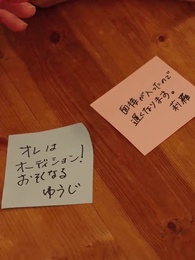 オレは
オーディション!
おそくなる
ゆうじ
面接が入ったので
遅くなります。
莉羅